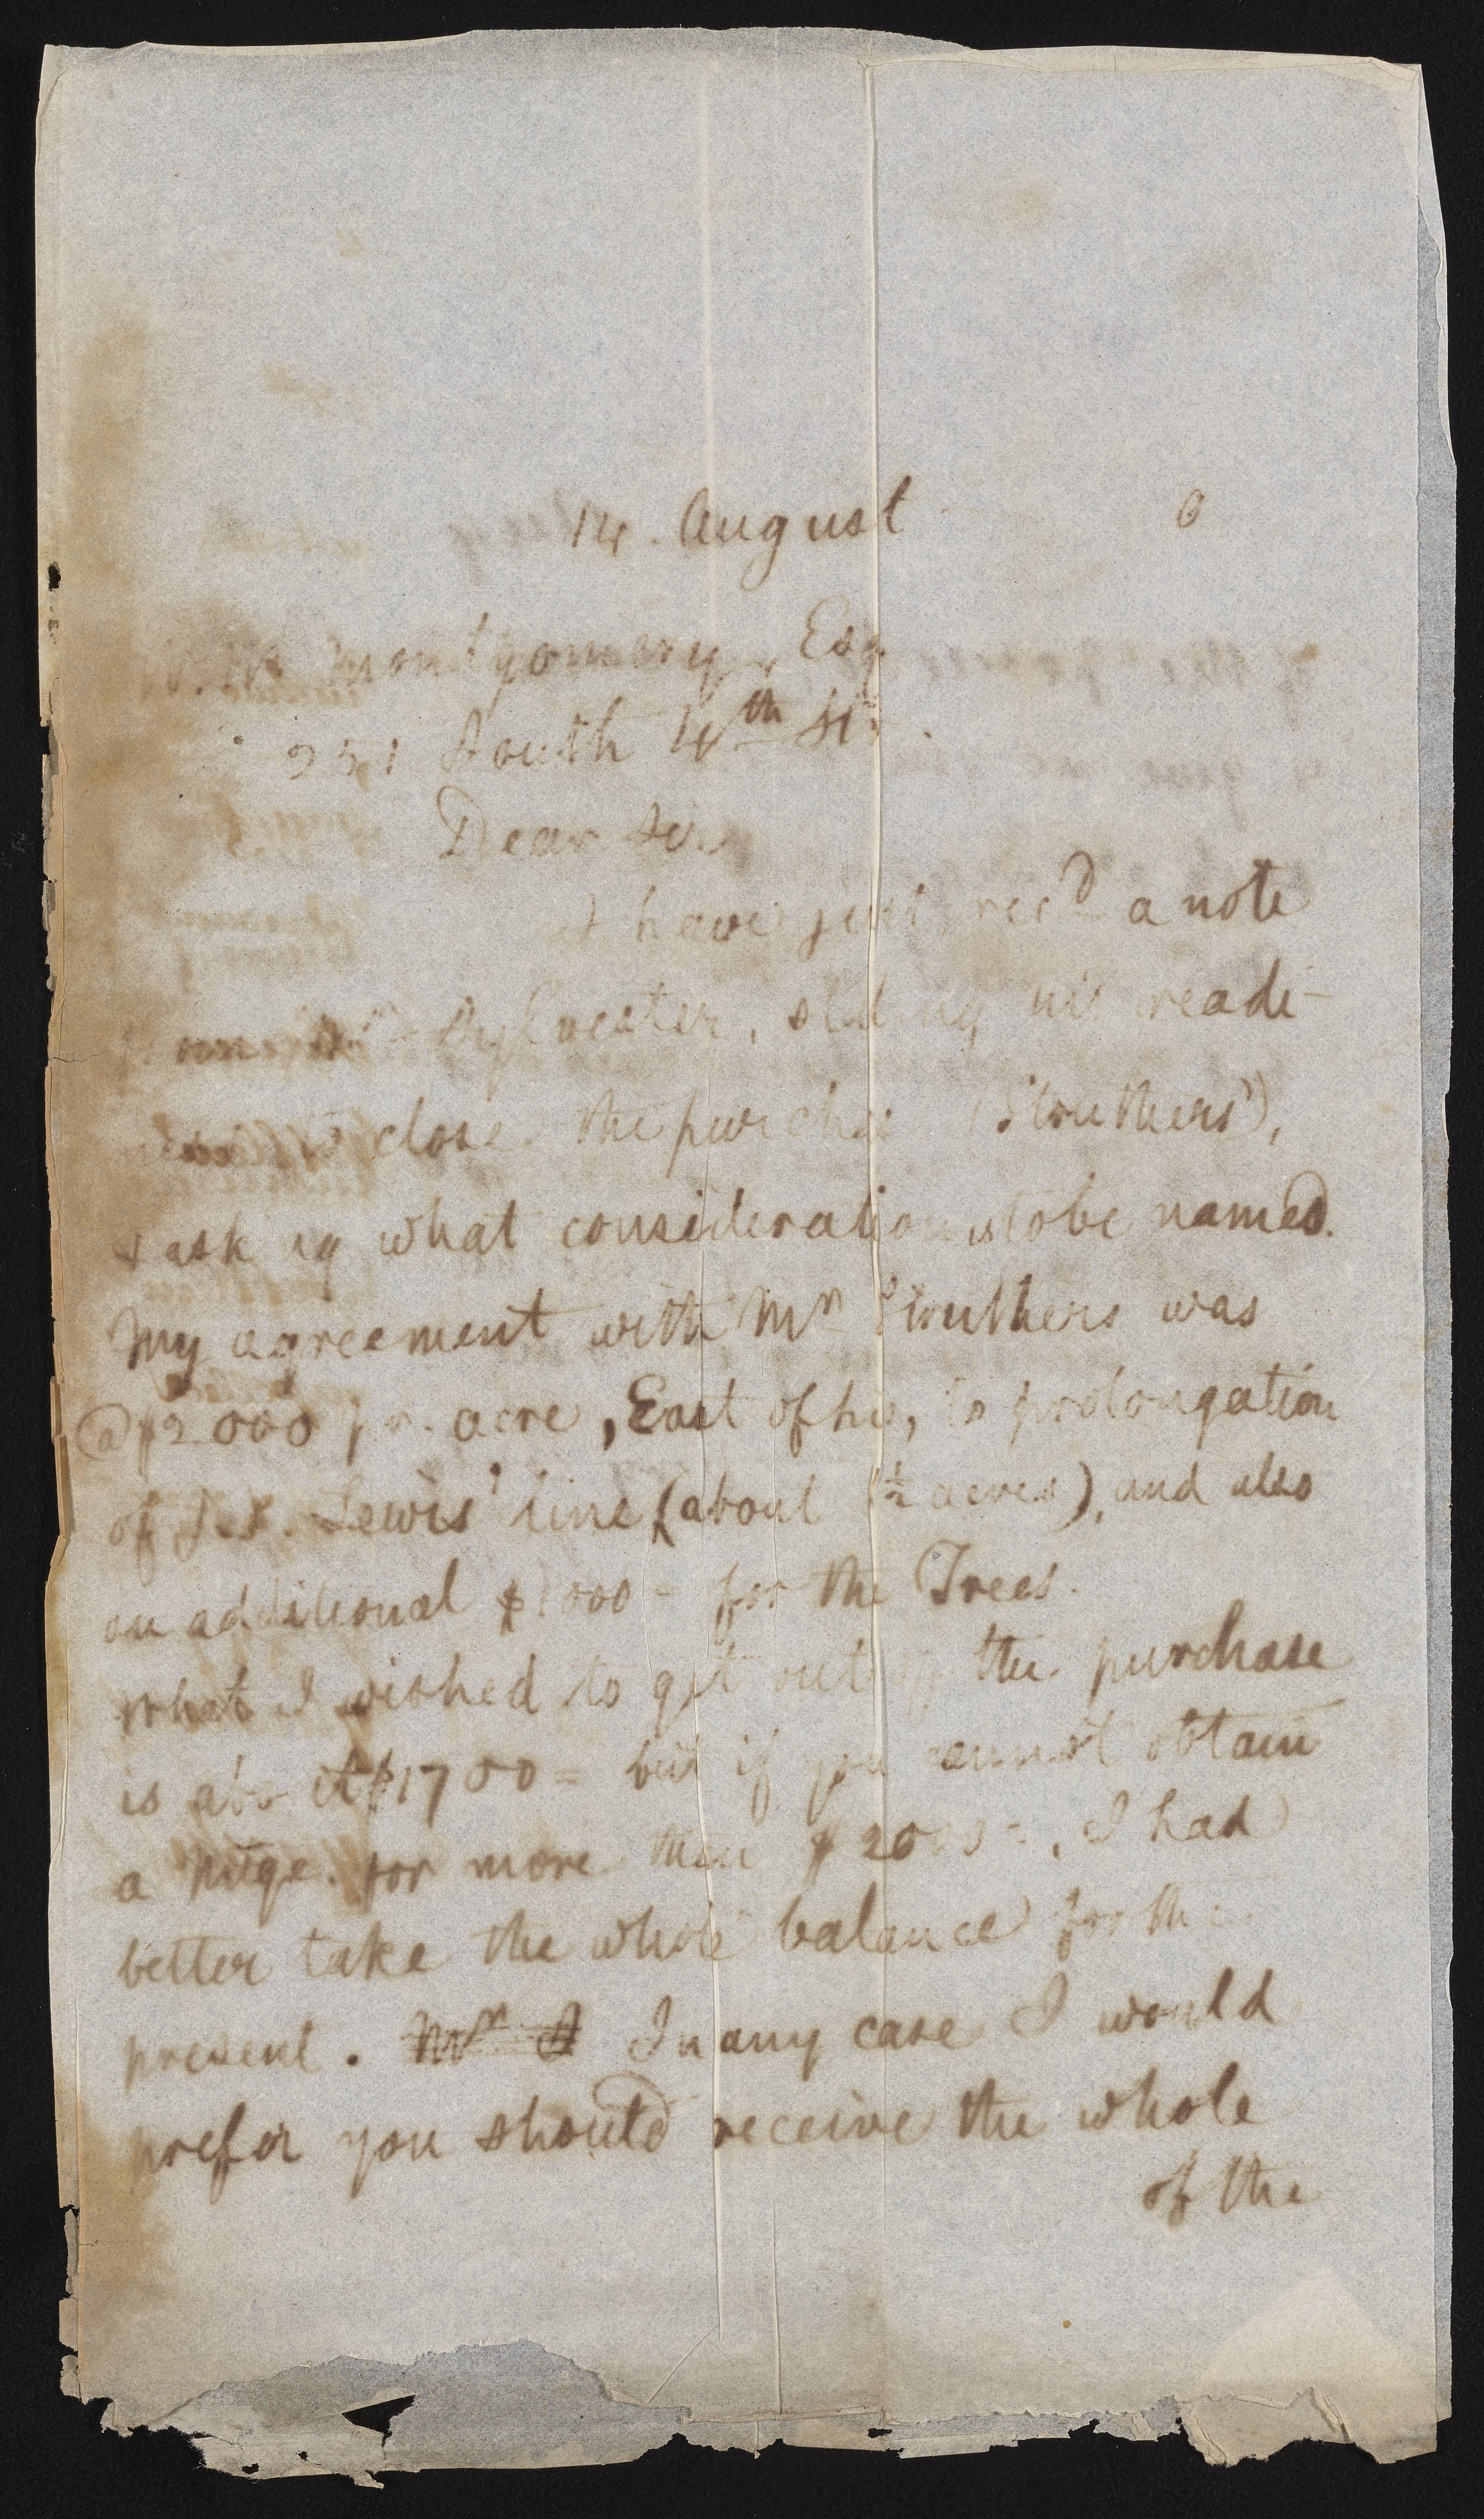 14. August
Montgomery, Esq
251 South 4th St.
Dear Sir
I have just recd a note
from Mr Sylvester, stating his readi-
ness to close the purchase (Struthers'),
& asking what consideration is to be named.
My agreement with Mr Struthers was
@ $2000 pr. acre, East of his, to prolongation
of Lewis' line (about ½ acres), and also
an additional $1000- for the Trees.
What I wished to get out of the purchase
is about $1700= but if you cannot obtain
a mtge. for more than $2000=, I had
better take the whole balance for the
present. Mr S In any case I would
prefer you should receive the whole
of the